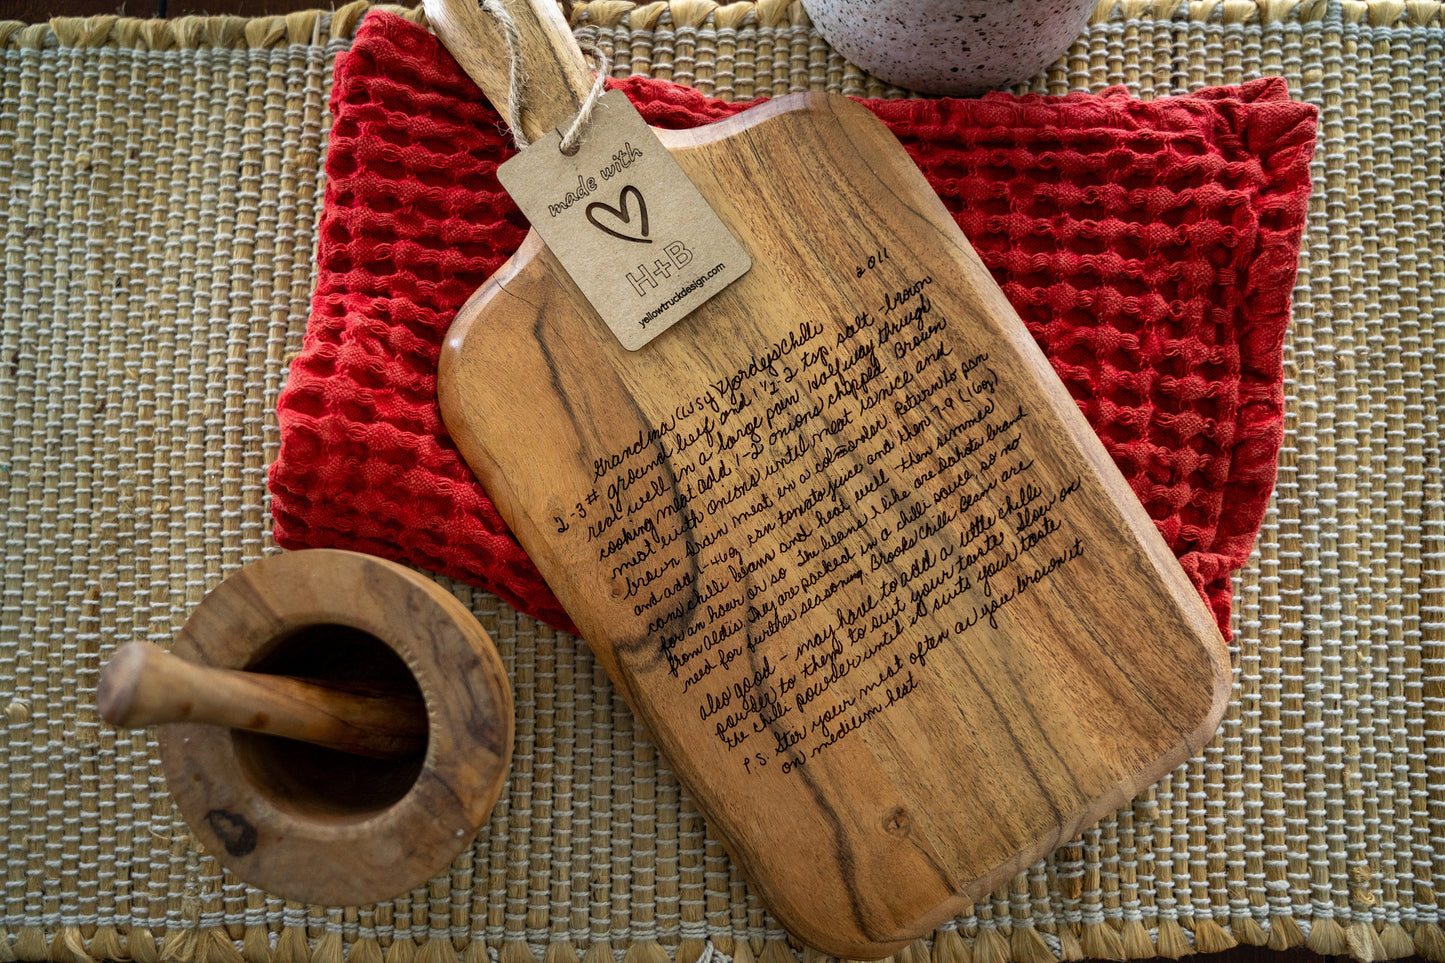 made with
H+B
yellowtruckdesign.com
2011
Grandma Yordejs Chilli
2-3# ground beef and 1 1/2-2 tsp salt - brown
real well in a large pan. Halfway through
cooking meat add 1-2 onions chopped. Brown
meat with onions until meat is nice and
brown. Drain meat in a colander. Return to pan
and add 1-46oz can tomato juice and then 7-9 (16oz)
cans chilli beans and heat well - then simmer
for an hour or so. The beans I like are Dakota brand
from Aldis. They are packed in a chilli sauce, so no
need for further seasoning. Brooks Chilli Beans are
also good - may have to add a little chilli
powder to them to suit your taste. Slow on
the chilli powder until it suits your taste
P.S. Ster your meat often as you brown it
on medicum heat